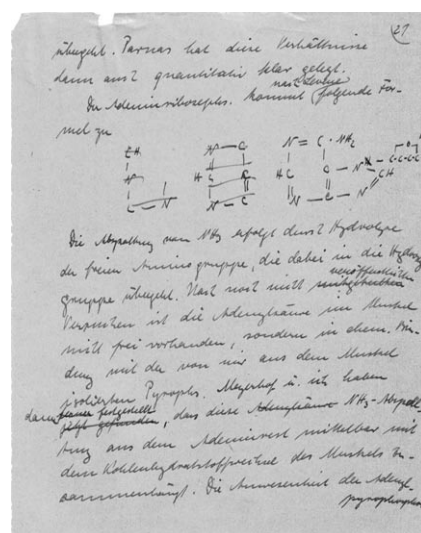 21
übergeht. Parnas hat diese Verhältnisse
dann auch quantitativ klar gelegt.
nach Levene
Der Adeninribosephs. kommt folgende For-
mel zu
CH N — C N = C · NH2
N H C C HC C — N CH
C — N N — C N — C — N
Die Abspaltung von NH3 erfolgt durch Hydrolyse
der freien Aminogruppe, die dabei in die Hydroxyl
gruppe übergeht. Nach noch nicht mitgeteilten
veröffentlichten
Versuchen ist die Adenylsäure im Muskel
nicht frei vorhanden, sondern in chem. Bin-
dung mit der von mir aus dem Muskel
isolierten Pyrophs. Meyerhof u. ich haben
dann ferner festgestellt
jetzt gefunden, das diese Adenylsäure NH3-Abspalt-
tung aus dem Adeninrest mittelbar mit
dem Kohlenhydratstoffwechsel des Muskels zu-
sammenhängt. Die Anwesenheit der Adenyl-
pyrophosphor